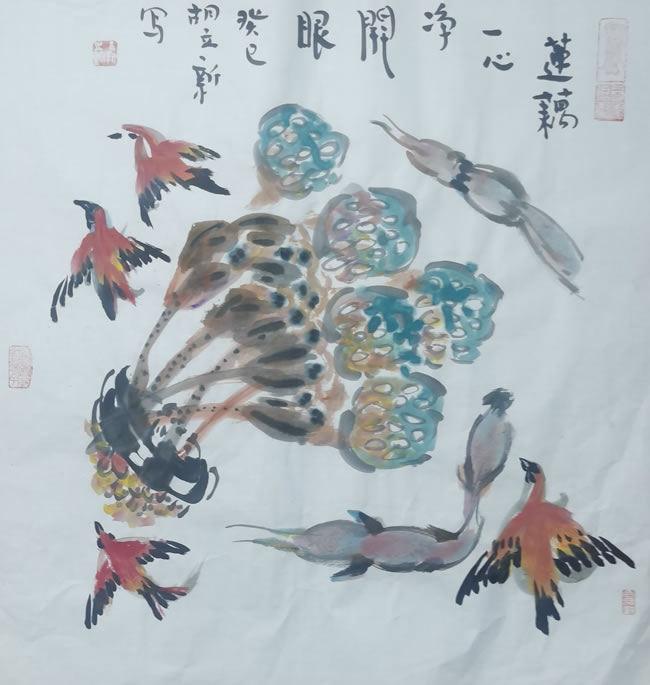 蓮藕
一心
净
開
眼
癸巳
胡立新
写